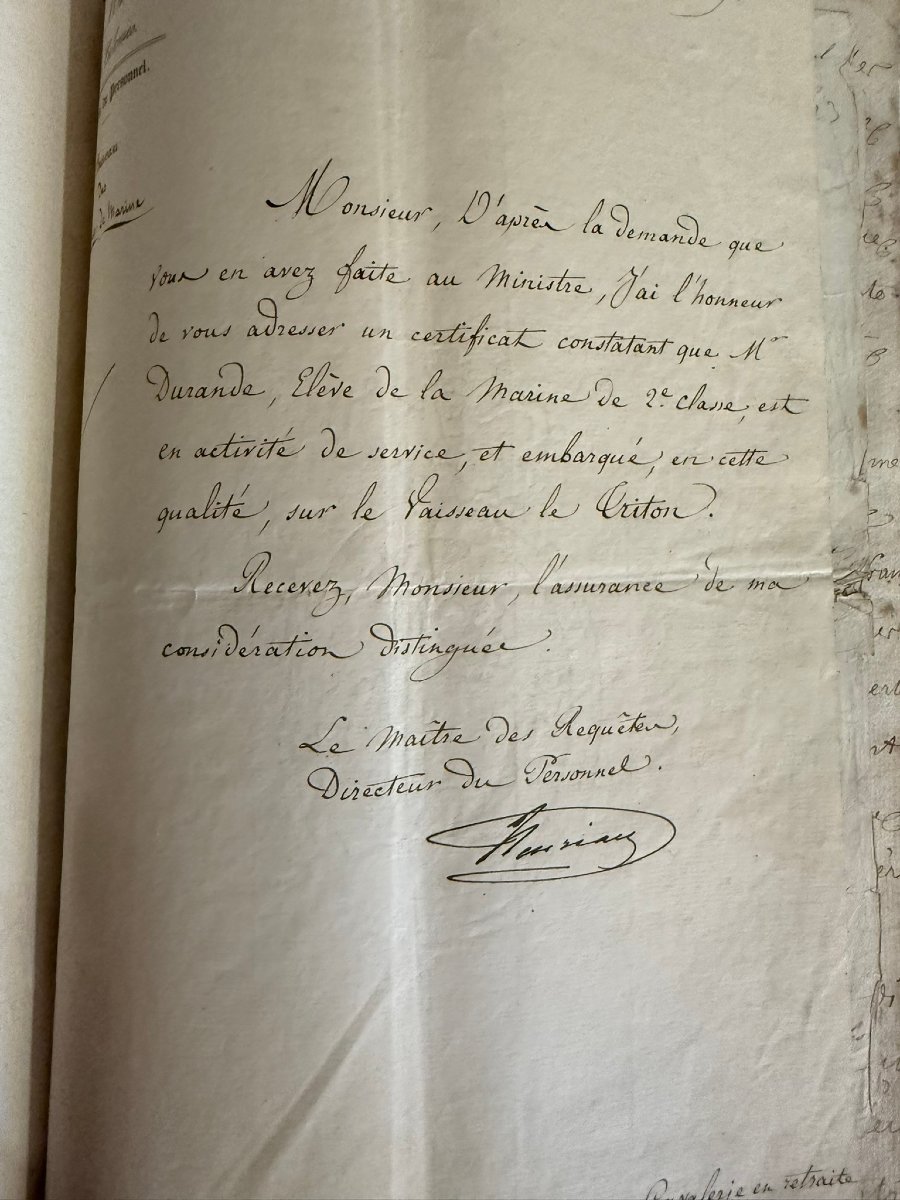 Personnel.
de Marine
Monsieur, D'après la demande que
vous en avez faite au Ministre, J'ai l'honneur
de vous adresser un certificat constatant que Mr
Durande, Elève de la Marine de 2e classe, est
en activité de service, et embarqué, en cette
qualité, sur le Vaisseau le Triton.
Recevez, Monsieur, l'assurance de ma
considération distinguée.
Le Maître des Requêtes,
Directeur du Personnel.
en retraite